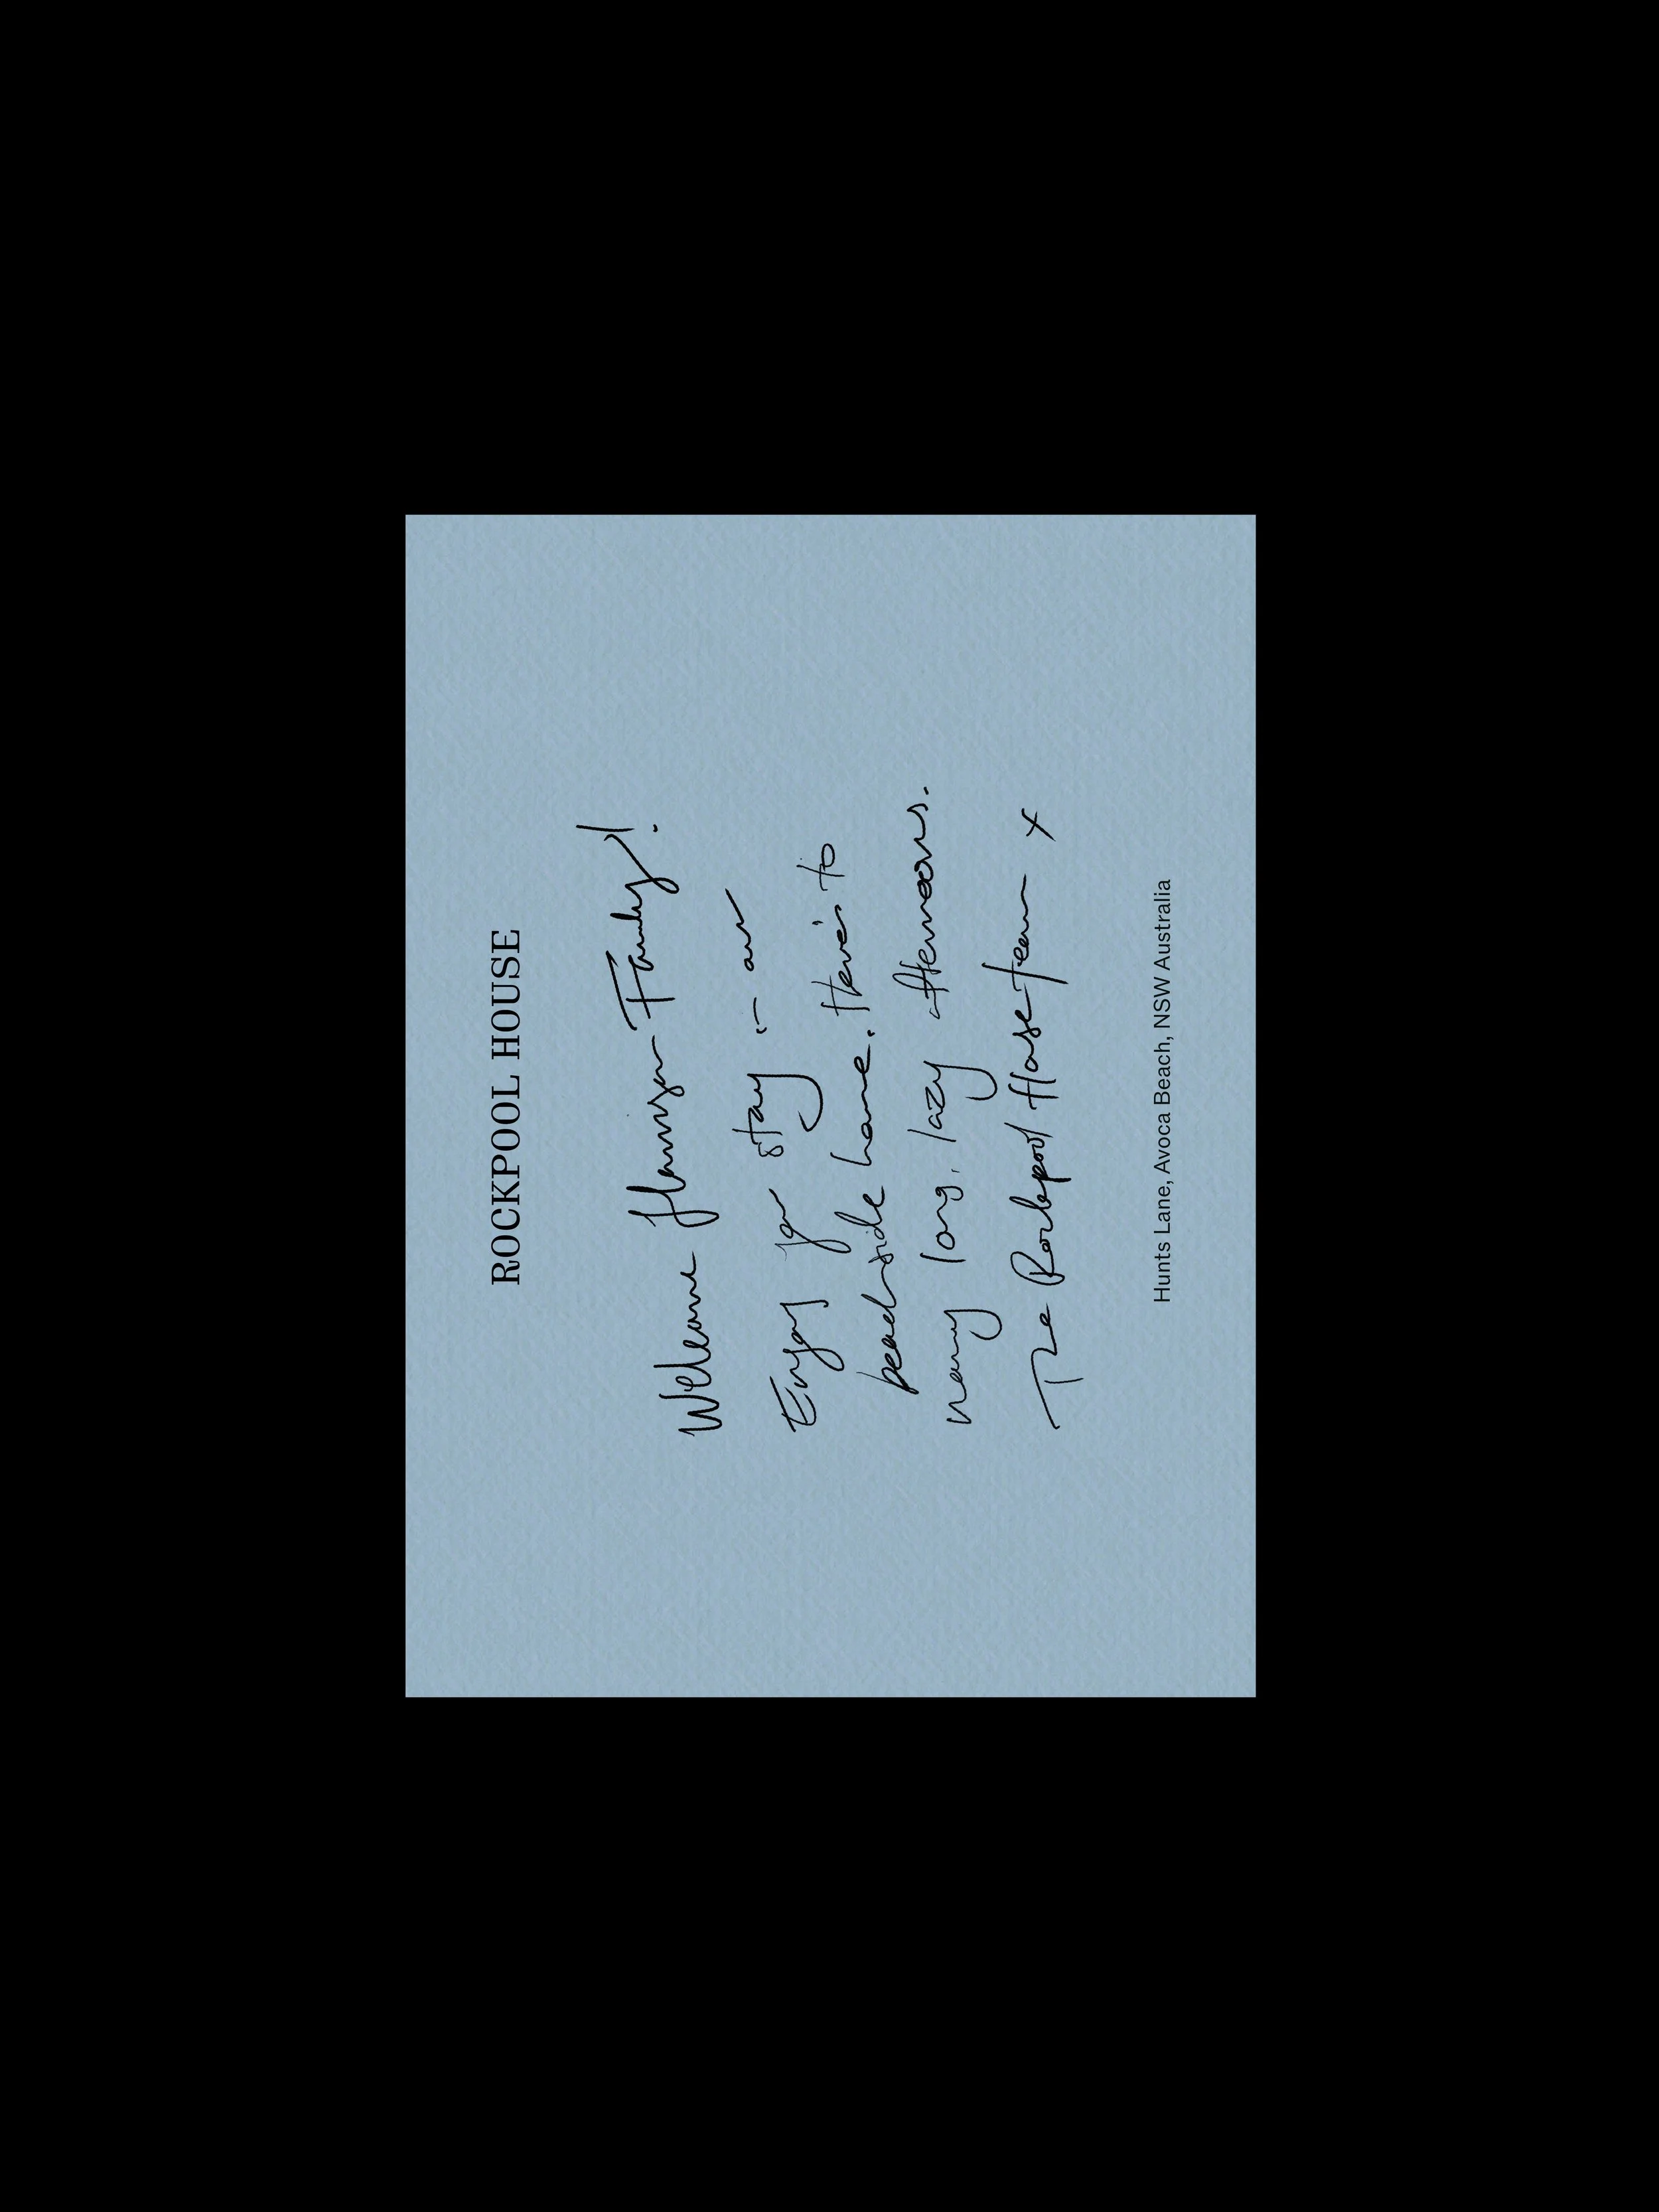 ROCKPOOL HOUSE
Welcome Harrison Family!
Enjoy your stay in our
beachside home. Here's to
many long, lazy afternoons.
The Rockpool House team x
Hunts Lane, Avoca Beach, NSW Australia